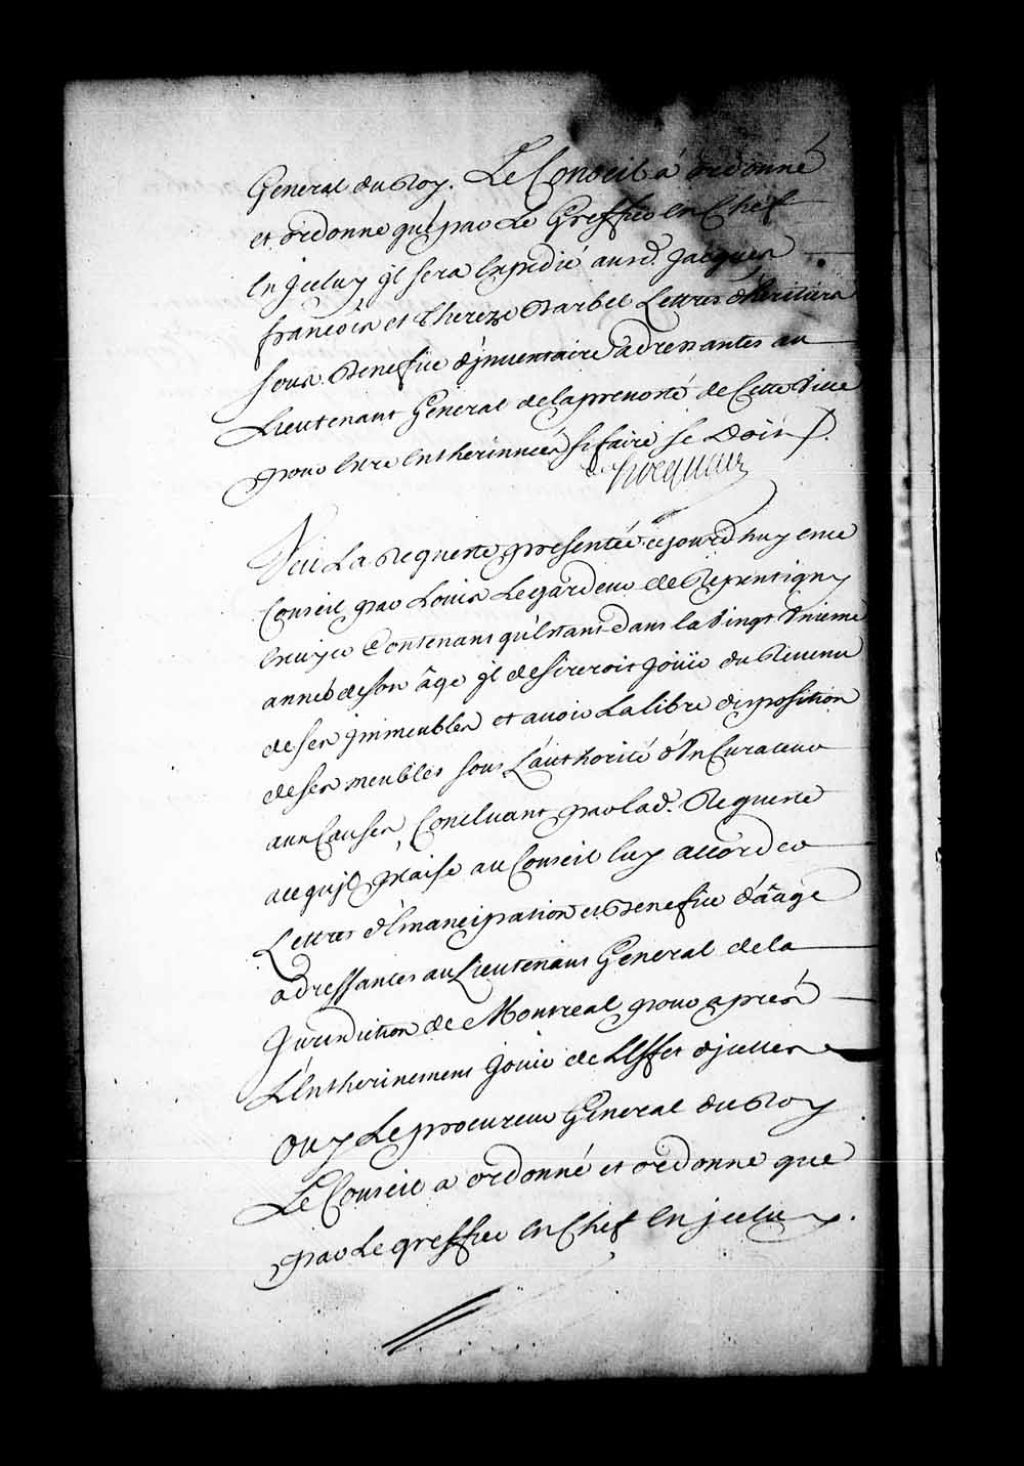 General du Roy. Le Conseil a ordonné
et ordonne que par Le Greffier en Chef
en jceluy jl sera expedié ausd. Jacques
françois et Thereze Barbel Lettres d'heritiers
sous Benefice d'jnventaire adressantes au
Lieutenant General de la prevosté de Cette Ville
pour Estre entherinnées si faire se Doit /.
Hocquart
Veu La Requeste presentée cejourd'huy en ce
Conseil par Louis Legardeur de Repentigny
Ecuyer Contenant qu'Etant dans la Vingt Unieme
année de son âge jl desireroit joüir du Revenu
de ses jmmeubles et avoir La libre disposition
de ses meubles sous L'authorité d'Un Curateur
aux Causes, Concluant par lad. Requeste
a ce qu'jl plaise au Conseil luy accorder
Lettres d'Emancipation et Benefice d'âage
adressantes au Lieutenant General de la
Jurisdiction de Montreal pour aprés
L'Entherinement jouir de L'Effet d'jcelles
Ouy Le procureur General du Roy
Le Conseil a ordonné et ordonne que
par Le greffier en Chef en jceluy